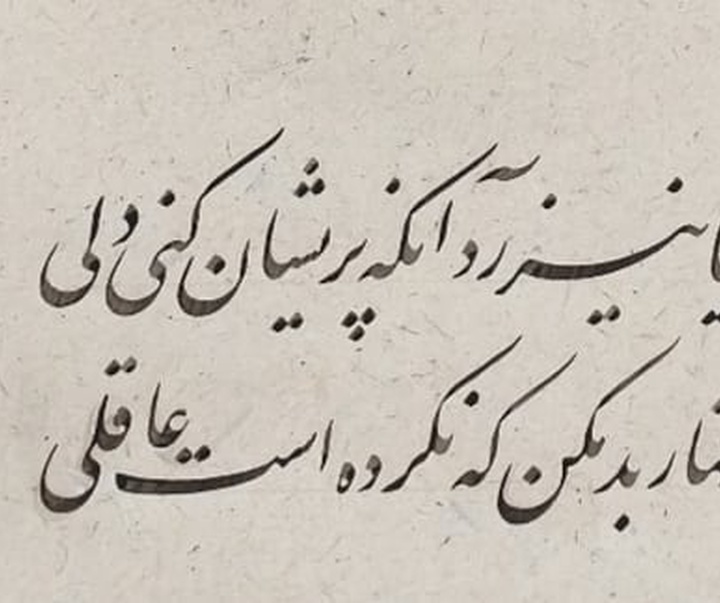 نیرزد آنکه پریشان کنی دلی
بد مکن که نکرده است عاقلی